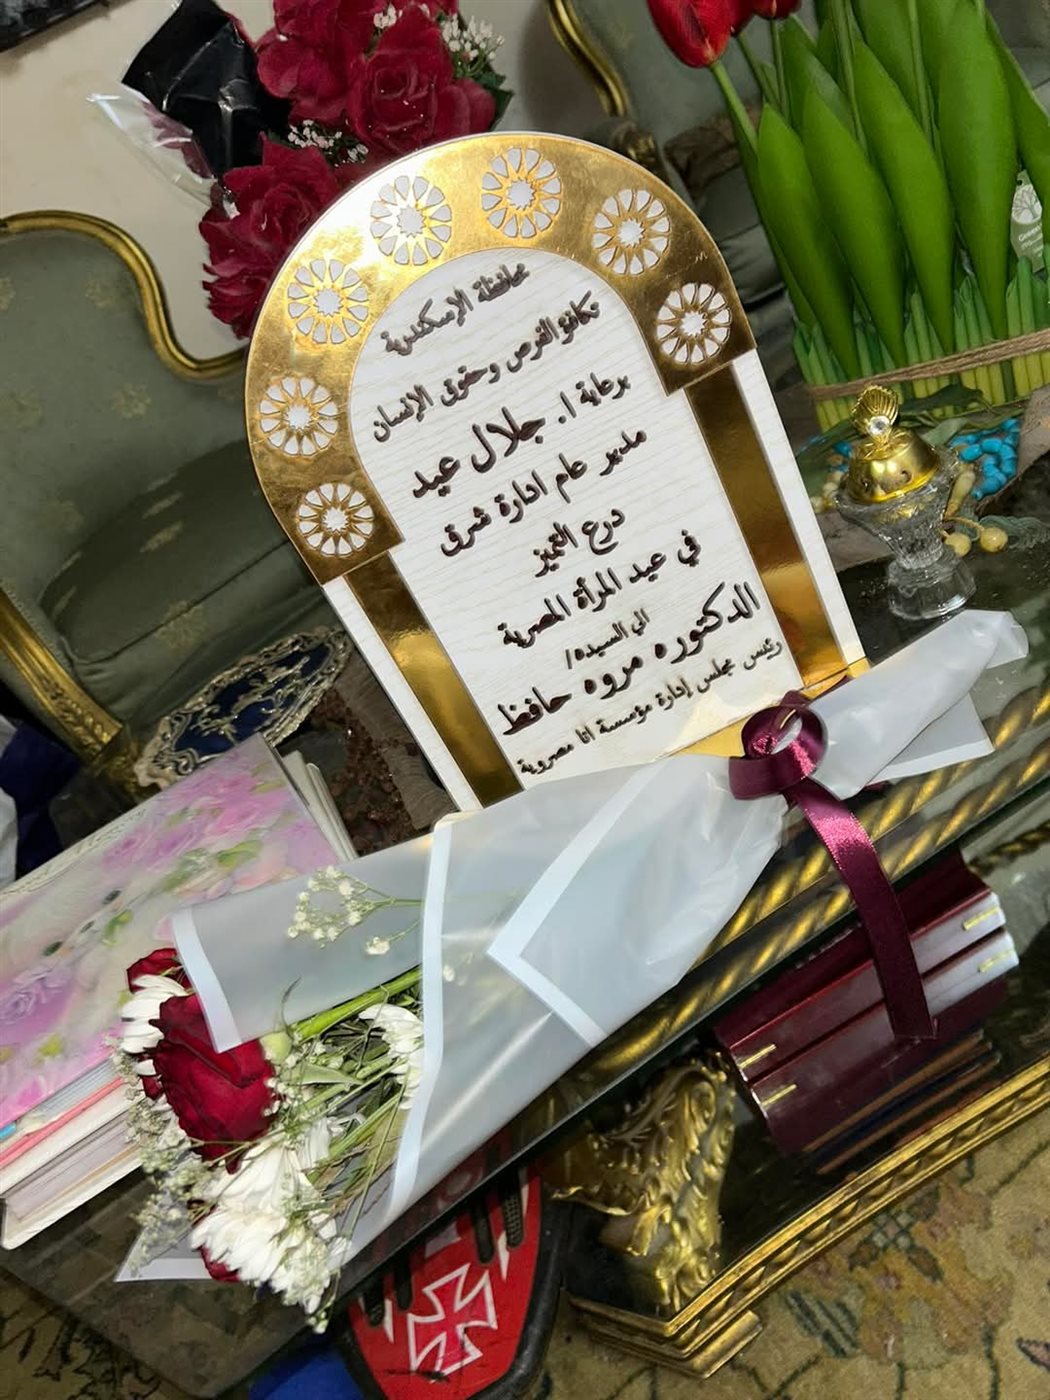 محافظة الإسكندرية
تكافؤ الفرص وحقوق الإنسان
برعاية ا. جلال عيد
مدير عام ادارة شرق
درع التميز
في عيد المرأة المصرية
الي السيده/
الدكتوره مروه حافظ
رئيس مجلس إدارة مؤسسة انا مصروية